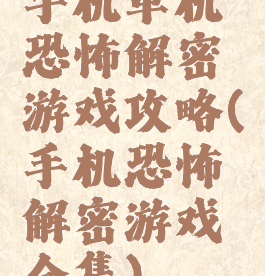 手机单机
恐怖解密
游戏攻略(
手机恐怖
解密游戏
合集)